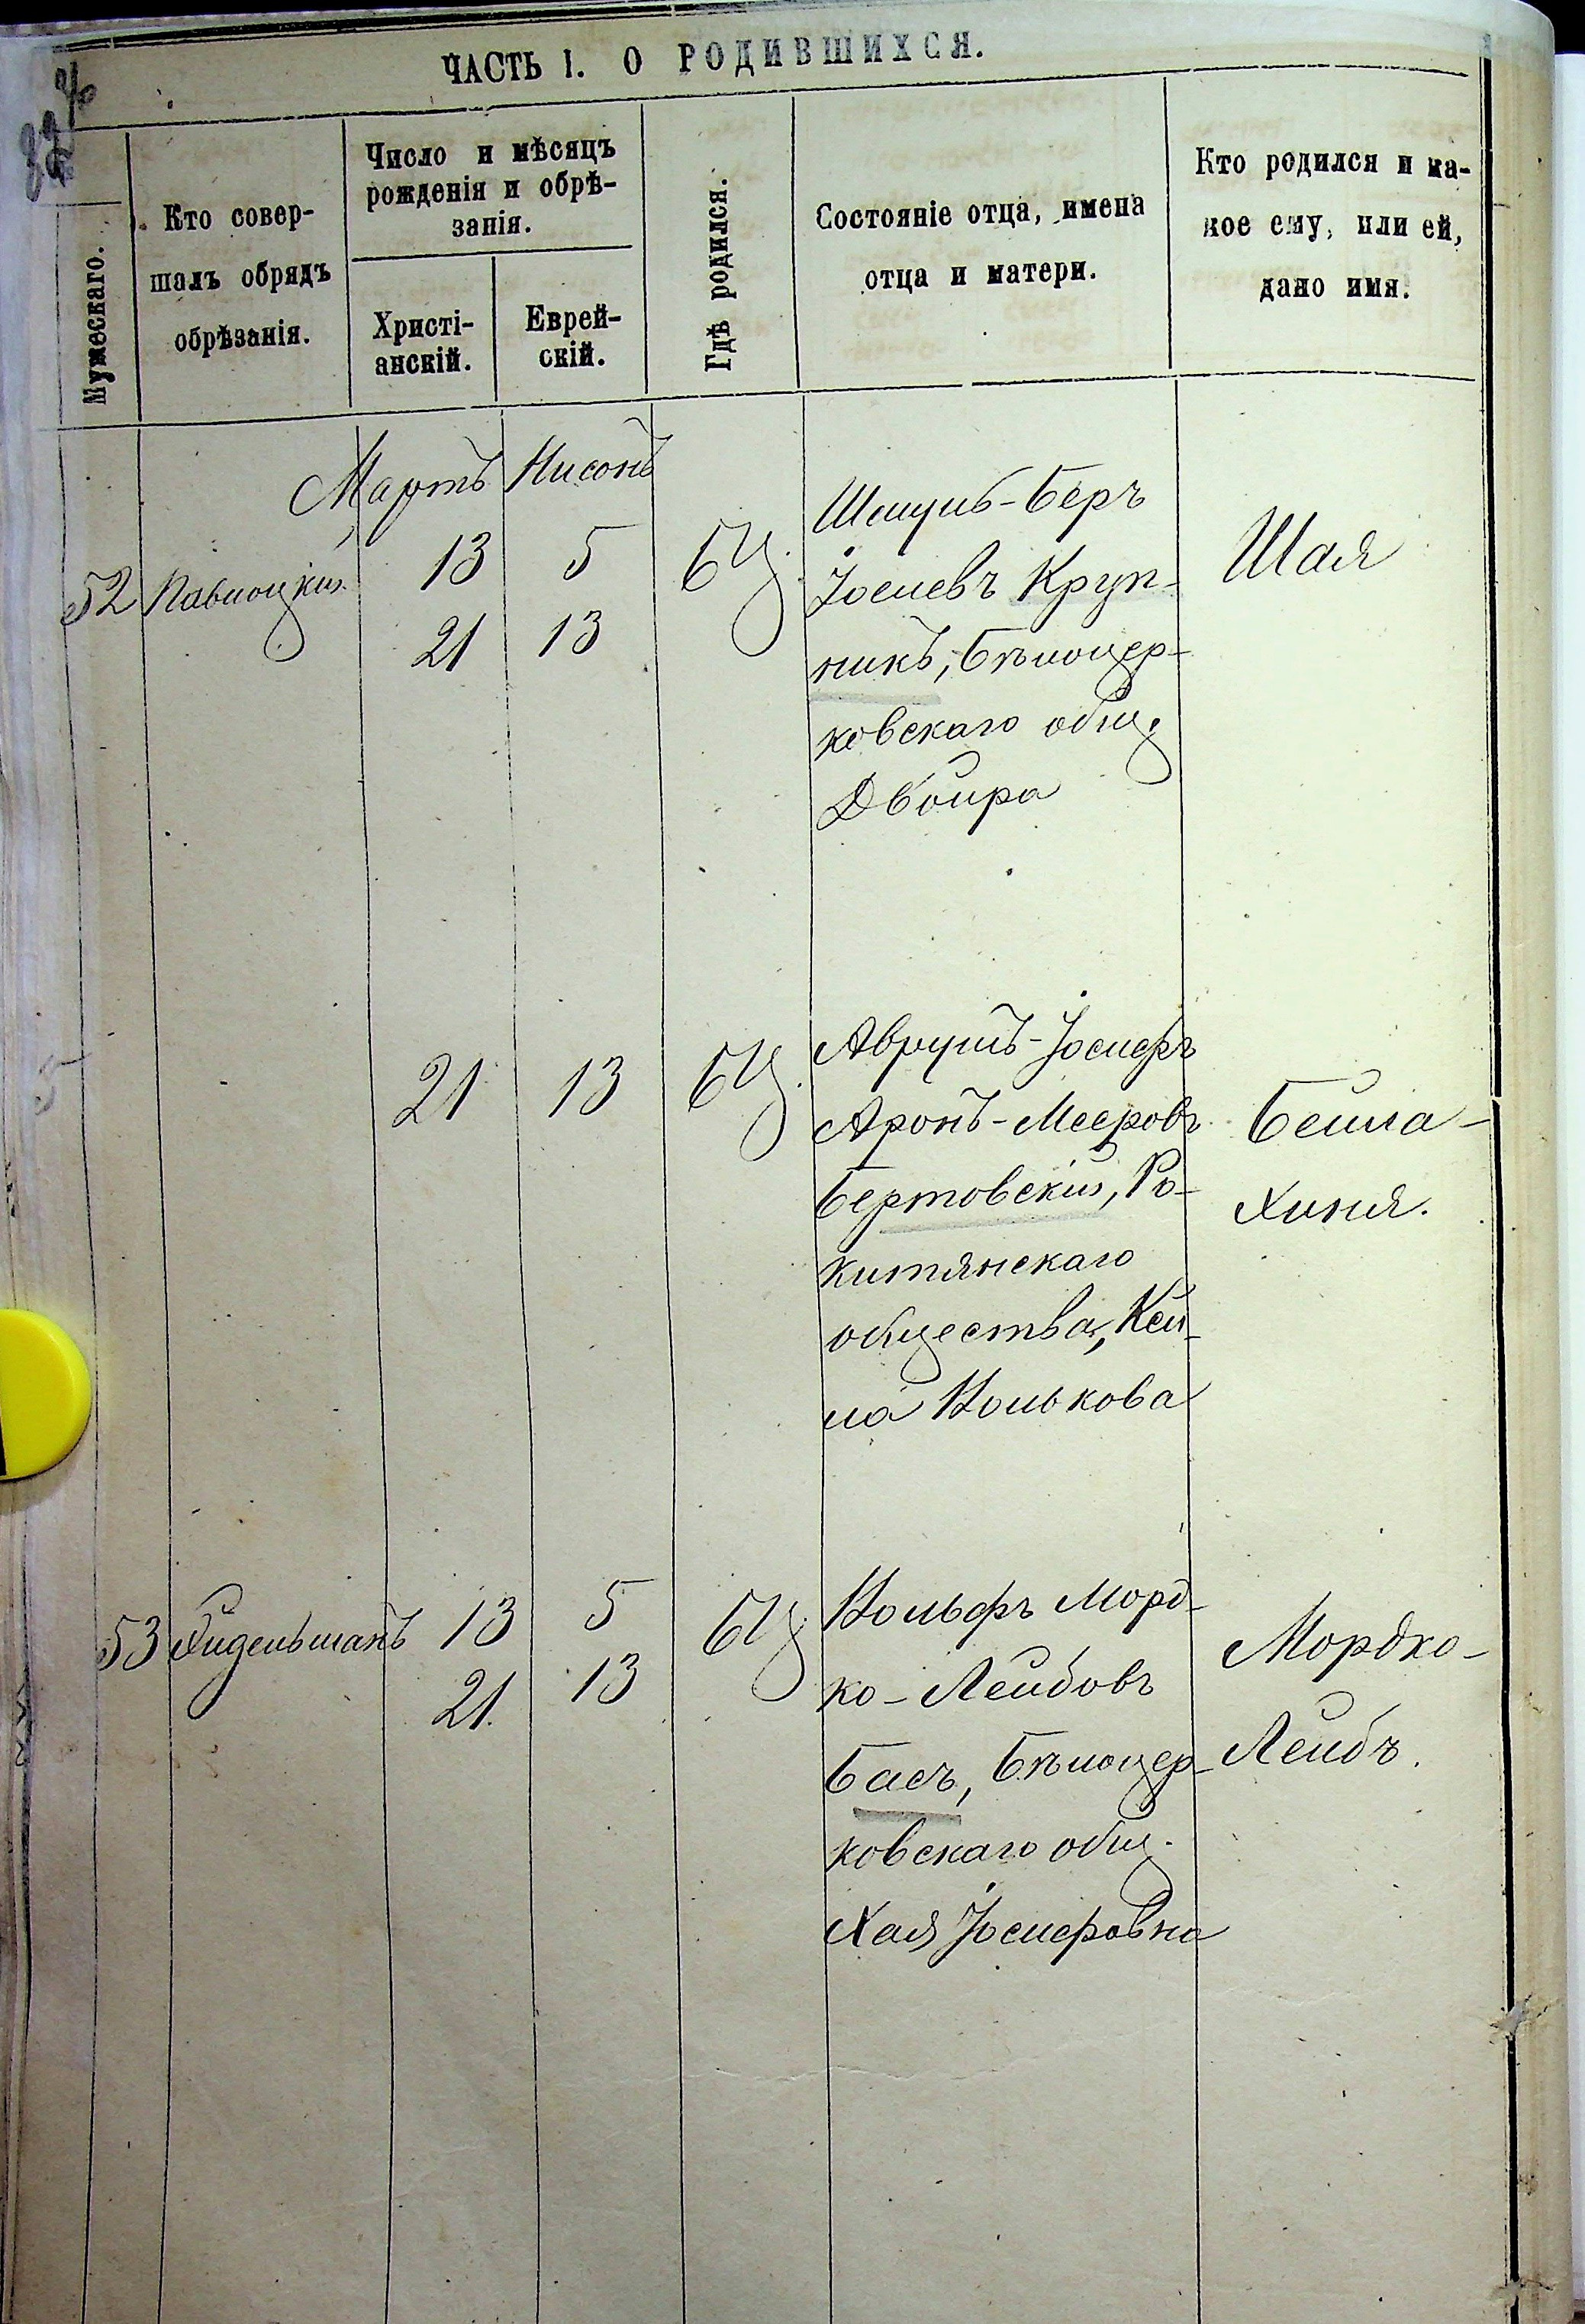 ЧАСТЬ I. О РОДИВШИХСЯ.
Мужескаго.
Кто совер-
шалъ обрядъ
обрѣзанія.
Число и мѣсяцъ
рожденія и обрѣ-
занія.
Христі-
анскій.
Еврей-
скій.
Гдѣ родился.
Состояніе отца, имена
отца и матери.
Кто родился и ка-
кое ему, или ей,
дано имя.
Мартъ Нисонъ
52 Паволоцкій
13 5
21 13
БЦ.
Шмуль-Беръ
Іоселевъ Круп-
никъ, Бѣлоцер-
ковскаго общ.
Двойра
Шая
21 13 БЦ.
Аврумъ-Іосифъ
Аронъ-Мееровъ
Бертовскій, Ро-
китянскаго
общества, Кей-
ла Волькова
Бейла-
Хиня.
53
13 5
21. 13
БЦ.
Вольфъ Морд-
ко-Лейбовъ
Басъ, Бѣлоцер-
ковскаго общ.
Хая Іосифовна
Мордко-
Лейбъ.